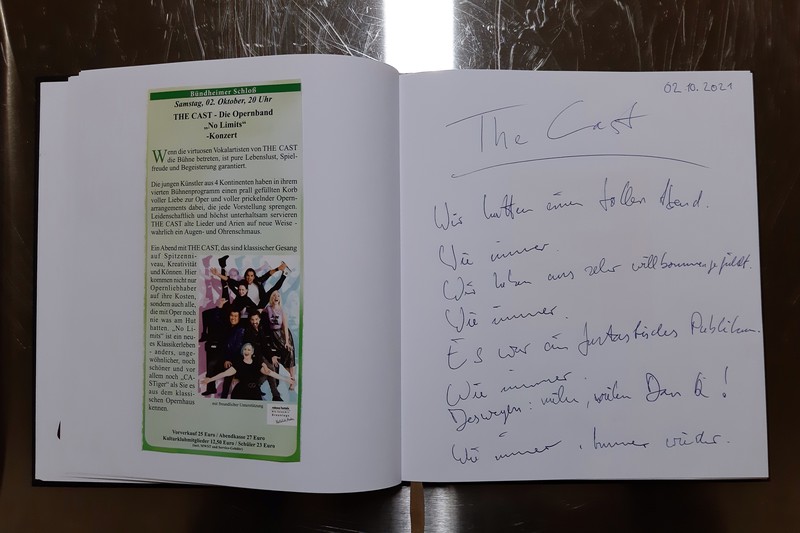 Bündheimer Schloß
Samstag, 02. Oktober, 20 Uhr
THE CAST - Die Opernband
„No Limits“
-Konzert
Wenn die virtuosen Vokalartisten von THE CAST
die Bühne betreten, ist pure Lebenslust, Spiel-
freude und Begeisterung garantiert.
Die jungen Künstler aus 4 Kontinenten haben in ihrem
vierten Bühnenprogramm einen prall gefüllten Korb
voller Liebe zur Oper und voller prickelnder Opern-
arrangements dabei, die jede Vorstellung sprengen.
Leidenschaftlich und höchst unterhaltsam servieren
THE CAST alte Lieder und Arien auf neue Weise -
wahrlich ein Augen- und Ohrenschmaus.
Ein Abend mit THE CAST, das sind klassischer Gesang
auf Spitzenni-
veau, Kreativität
und Können. Hier
kommen nicht nur
Opernliebhaber
auf ihre Kosten,
sondern auch alle,
die mit Oper noch
nie was am Hut
hatten. „No Li-
mits“ ist ein neu-
es Klassikerleben
- anders, unge-
wöhnlicher, noch
schöner und vor
allem noch „CA-
STiger“ als Sie es
aus dem klassi-
schen Opernhaus
kennen.
mit freundlicher Unterstützung
Vorverkauf 25 Euro / Abendkasse 27 Euro
Kulturklubmitglieder 12,50 Euro / Schüler 23 Euro
02.10.2021
The Cast
Wir hatten einen tollen Abend.
Wie immer.
Wir haben uns sehr willkommen gefühlt.
Wie immer.
Es war ein fantastisches Publikum.
Wie immer.
Deswegen: vielen, vielen Dank!
Wie immer, immer wieder.